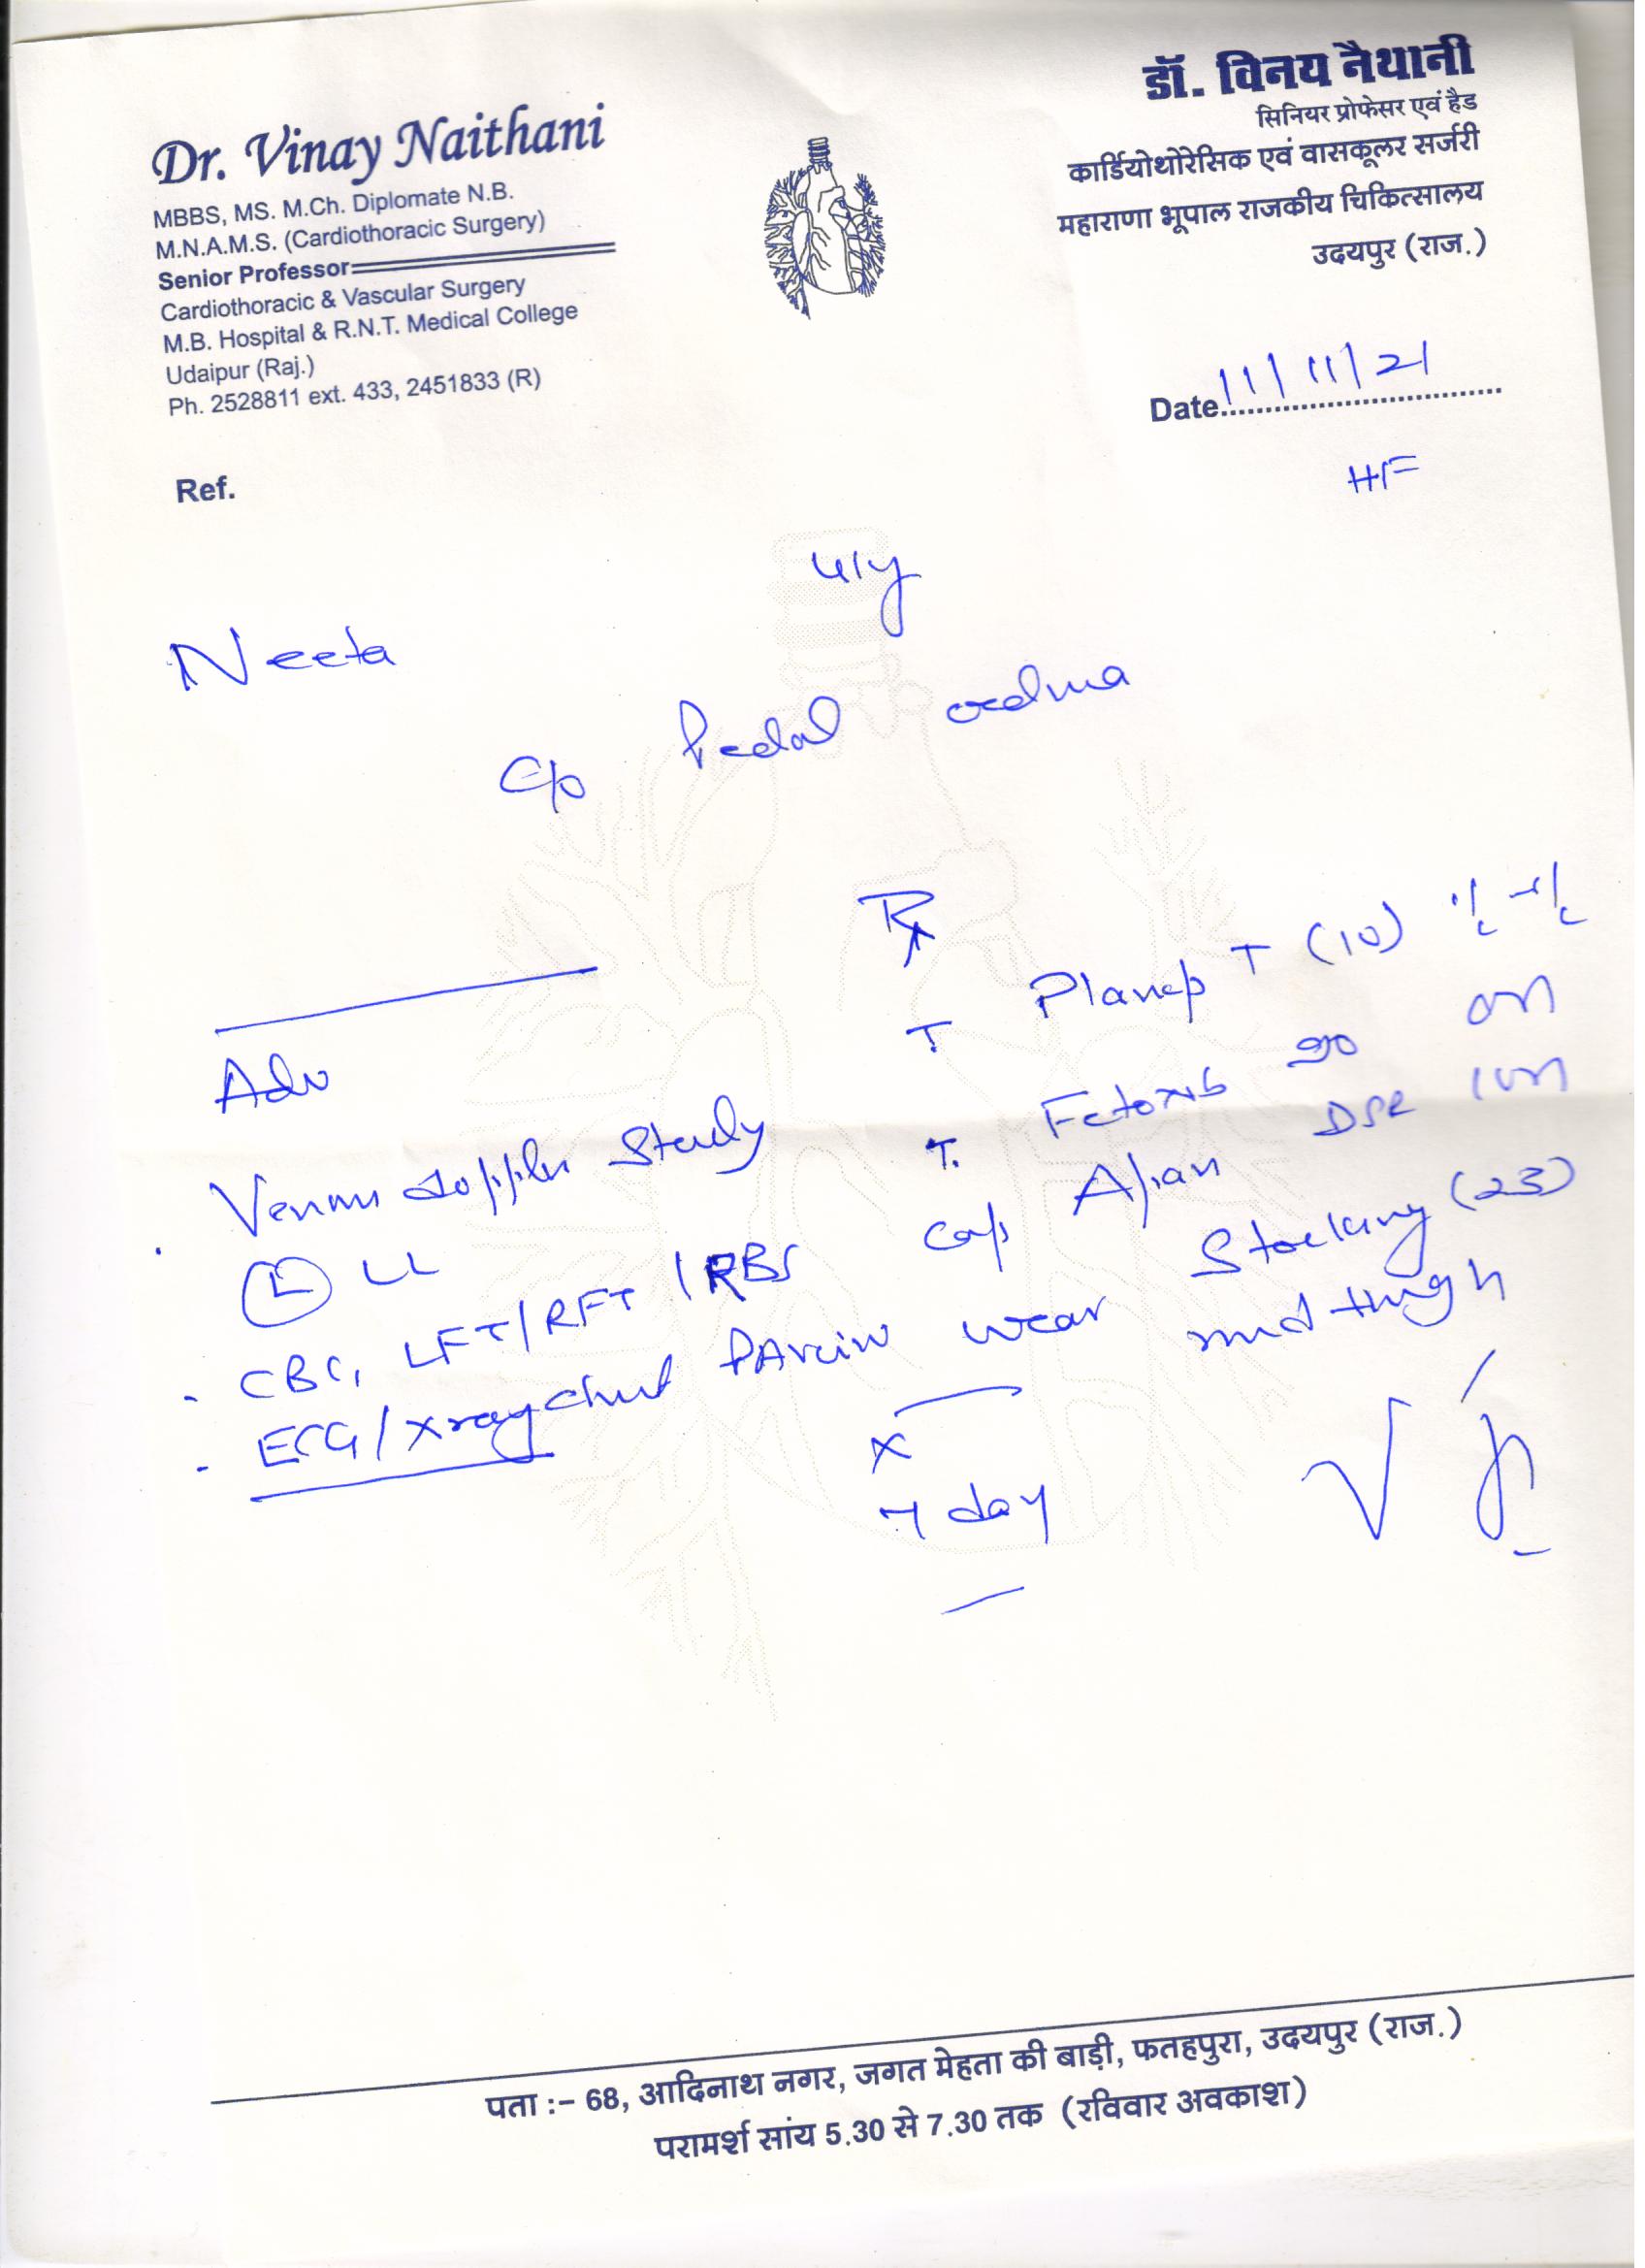 Dr. Vinay Naithani
MBBS, MS. M.Ch. Diplomate N.B.
M.N.A.M.S. (Cardiothoracic Surgery)
Senior Professor
Cardiothoracic & Vascular Surgery
M.B. Hospital & R.N.T. Medical College
Udaipur (Raj.)
Ph. 2528811 ext. 433, 2451833 (R)
डॉ. विनय नैथानी
सिनियर प्रोफेसर एवं हैड
कार्डियोथोरेसिक एवं वासकूलर सर्जरी
महाराणा भूपाल राजकीय चिकित्सालय
उदयपुर (राज.)
Date 11/11/21
Ref.
Neeta
C/o Pedal oedma
Rx
T Planep T (10)
T. Fetoxib 90 OD
Cap Apan DSR
PAvein wear Stocking (23)
mid thigh
x
7 day
Adv
Venous doppler Study
(L) LL
CBC, LFT/RFT/RBS
ECG/xray chest
पता :– 68, आदिनाथ नगर, जगत मेहता की बाड़ी, फतहपुरा, उदयपुर (राज.)
परामर्श सांय 5.30 से 7.30 तक (रविवार अवकाश)